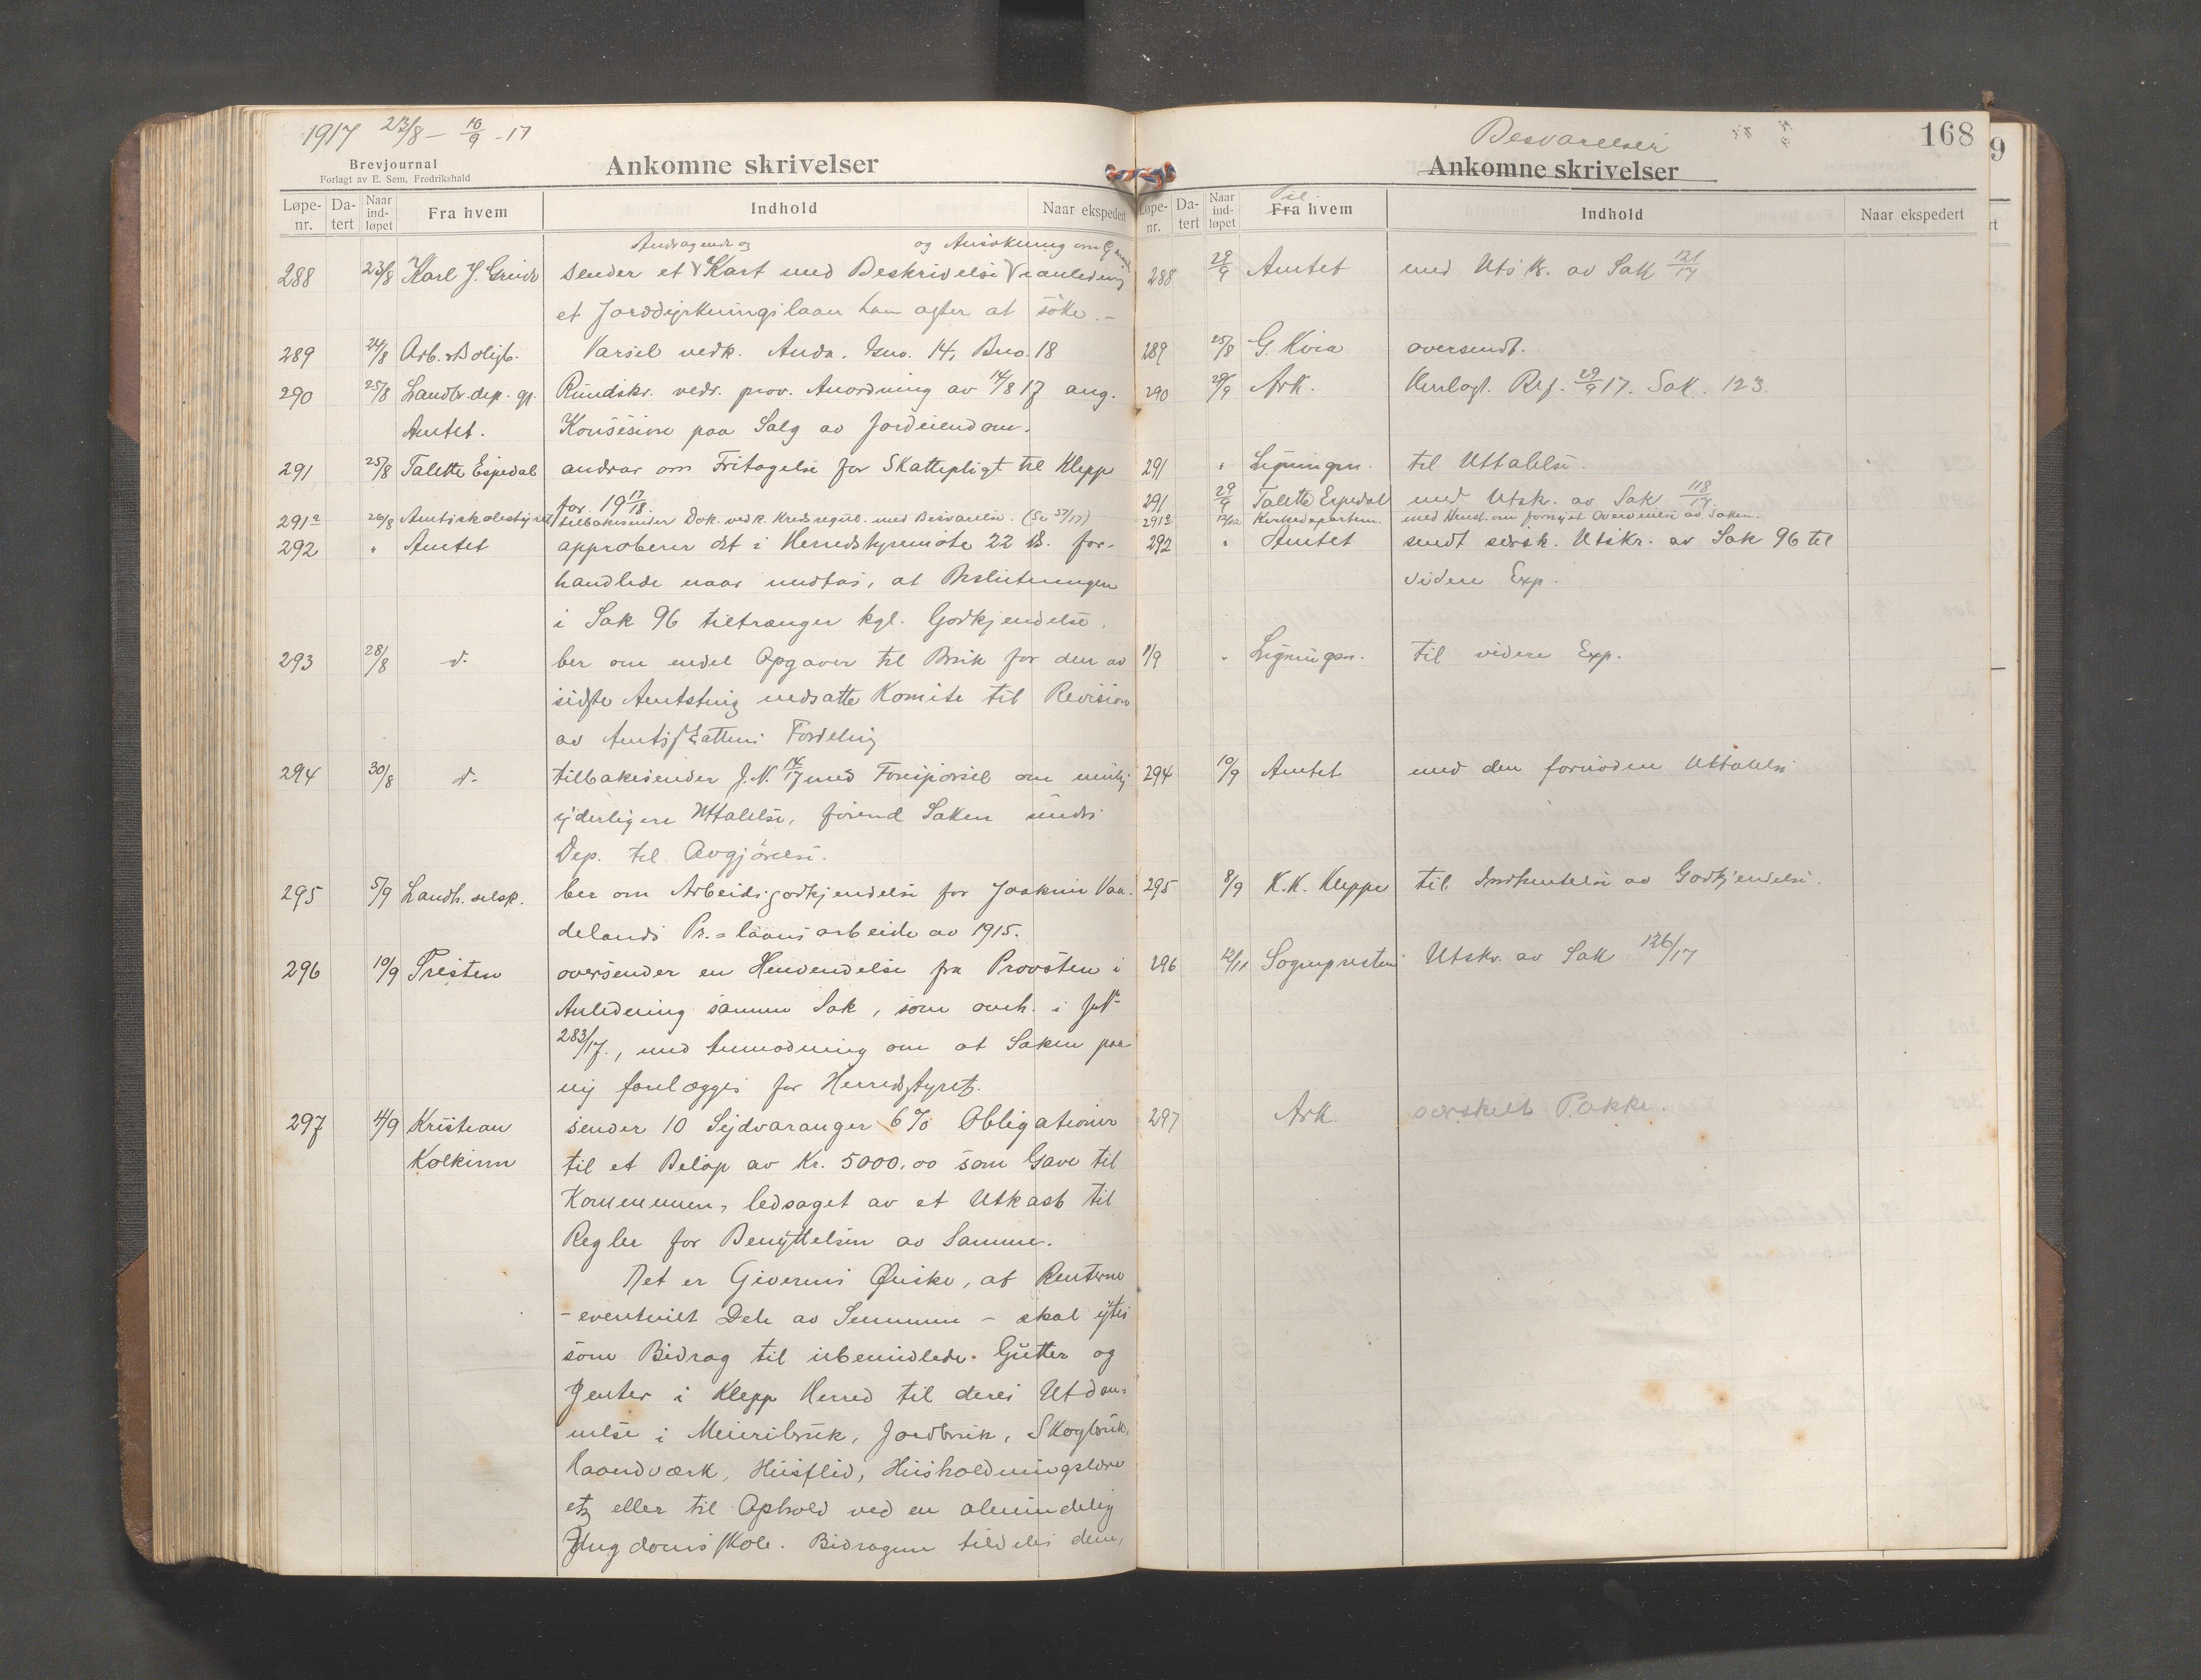 1917 23/8 – 10/9 - 17
Brevjournal
Forlagt av E. Sem, Fredrikshald
Ankomne skrivelser
Løpe-nr. Da-tert Naar ind-løpet Fra hvem Indhold Naar ekspedert
Andragende og og Ansøkning om
288 23/8 Karl J. sender et Kart med Beskrivelse i anledning
et Jorddyrkningslaan han agter at søke. –
289 24/8 Arb. & Boligb. Varsel vedk. Anda, Gno. 14, Bno. 18
290 25/8 Landbr. dep. gj. Rundskr. vedr. prov. Anordning av 14/8 17 ang.
Amtet. Konsesion paa Salg av Jordeiendom.
291 25/8 Talette Espedal andrar om Fritagelse for Skattepligt til Klepp
for 19 17/18.
291a 26/8 Amtsskolestyret tilbakesender Dok. vedk. Kredsregul. med Besvarelse. (Se 57/17)
292 " Amtet approberer det i Herredstyremøte 22 ds. for-
handlede naar undtas, at Beslutningen
i Sak 96 tiltrænger kgl. Godkjendelse.
293 28/8 d. ber om endel Opgaver til Bruk for den av
sidste Amtsting nedsatte Komite til Revision
av Amtsskattens Fordeling
294 30/8 d. tilbakesender J.N. 14/17 med Forespørsel om mulig
yderligere Uttalelse, førend Saken sendes
Dep. til Avgjørelse.
295 5/9 Landh. selsk. ber om Arbeidsgodkjendelse for Joakim Vau-
delands Pr.=laans arbeide av 1915.
296 10/9 Presten oversender en Henvendelse fra Provsten i
Anledning samme Sak, som omh. i JN.
283/17., med Anmodning om at Saken paa
ny forelægges for Herredsstyret.
297 4/9 Kristian sender 10 Sydvaranger 6% Obligationer
Kolkinn til et Beløp av Kr. 5000.00 som Gave til
Kommunen, ledsaget av et Utkast til
Regler for Benyttelsen av Samme.
Det er Giverens Ønske, at Renterne
– eventuelt Dele av Summen – skal ytes
som Bidrag til ubemidlede Gutter og
Jenter i Klepp Herred til deres Utdan-
nelse i Meieribruk, Jordbruk, Skogbruk,
Haandværk, Husflid, Husholdningslære
etz eller til Ophold ved en almindelig
Ungdomsskole. Bidragene tildeles dem,
168
Besvarelser
Ankomne skrivelser
Løpe-nr. Da-tert Naar ind-løpet Til Fra hvem Indhold Naar ekspedert
288 29/9 Amtet med Utsk. av Sak 121/17
289 25/8 G. Kvia oversendt.
290 29/9 Ark. Henlagt. Ref. 29/9 17. Sak. 123.
291 " Ligningsn. til Uttalelse.
291 29/9 Talette Espedal med Utsk. av Sak 118/17.
291a 12/12 Kirkedepartem. med Henst. om fornyet Overveielse av Saken.
292 " Amtet sendt særsk. Utskr. av Sak 96 til
videre Exp.
1/9 " Ligningsn. til videre Exp.
294 10/9 Amtet med den fornødne Uttalelse
295 8/9 K.K. Kleppe til Indhentelse av Godkjendelse.
296 12/11 Sognepresten Utskr. av Sak 126/17
297 Ark. særskilt Pakke.
9